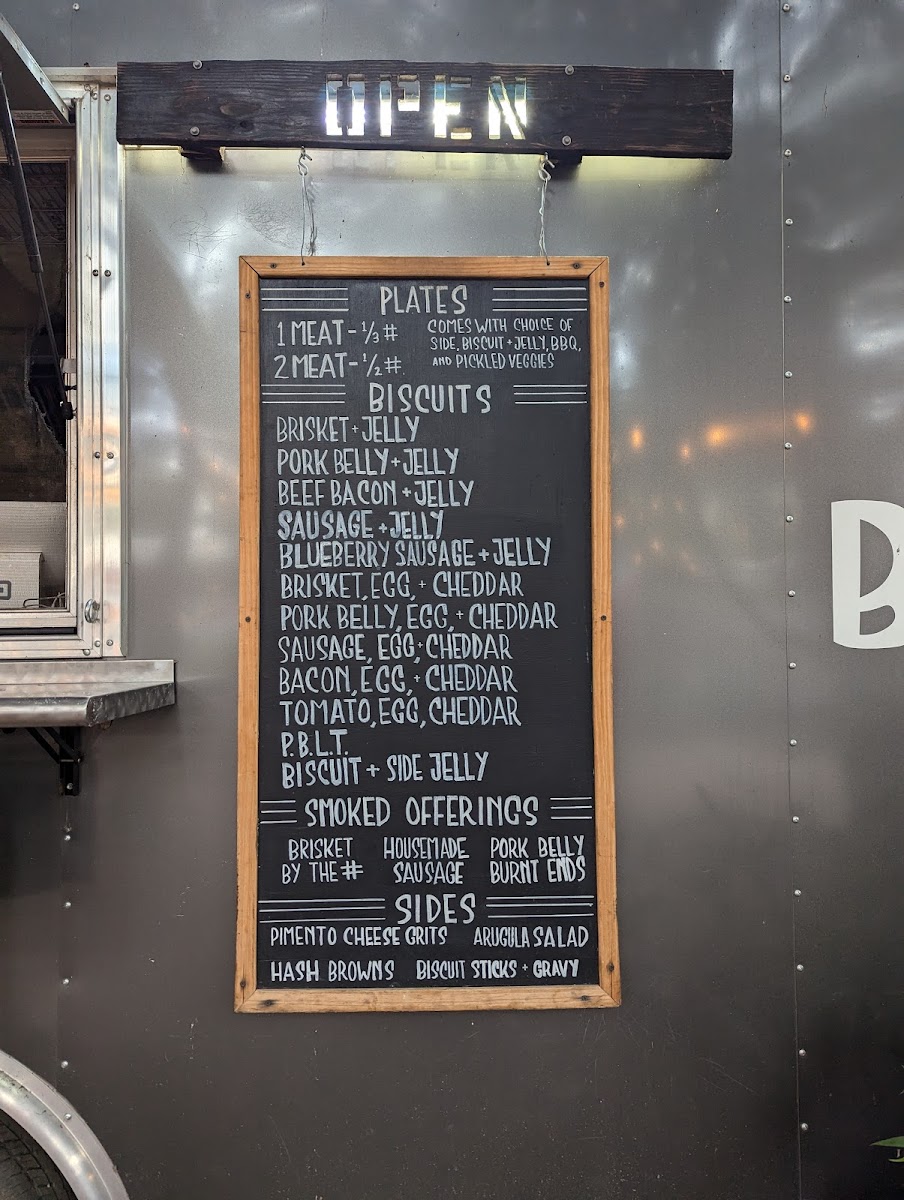 OPEN
PLATES
1 MEAT - 1/3 #
2 MEAT - 1/2 #
COMES WITH CHOICE OF
SIDE, BISCUIT + JELLY, BBQ,
AND PICKLED VEGGIES
BISCUITS
BRISKET + JELLY
PORK BELLY + JELLY
BEEF BACON + JELLY
SAUSAGE + JELLY
BLUEBERRY SAUSAGE + JELLY
BRISKET, EGG, + CHEDDAR
PORK BELLY, EGG, + CHEDDAR
SAUSAGE, EGG + CHEDDAR
BACON, EGG, + CHEDDAR
TOMATO, EGG, CHEDDAR
P.B.L.T.
BISCUIT + SIDE JELLY
SMOKED OFFERINGS
BRISKET
BY THE #
HOUSEMADE
SAUSAGE
PORK BELLY
BURNT ENDS
SIDES
PIMENTO CHEESE GRITS ARUGULA SALAD
HASH BROWNS BISCUIT STICKS + GRAVY
B